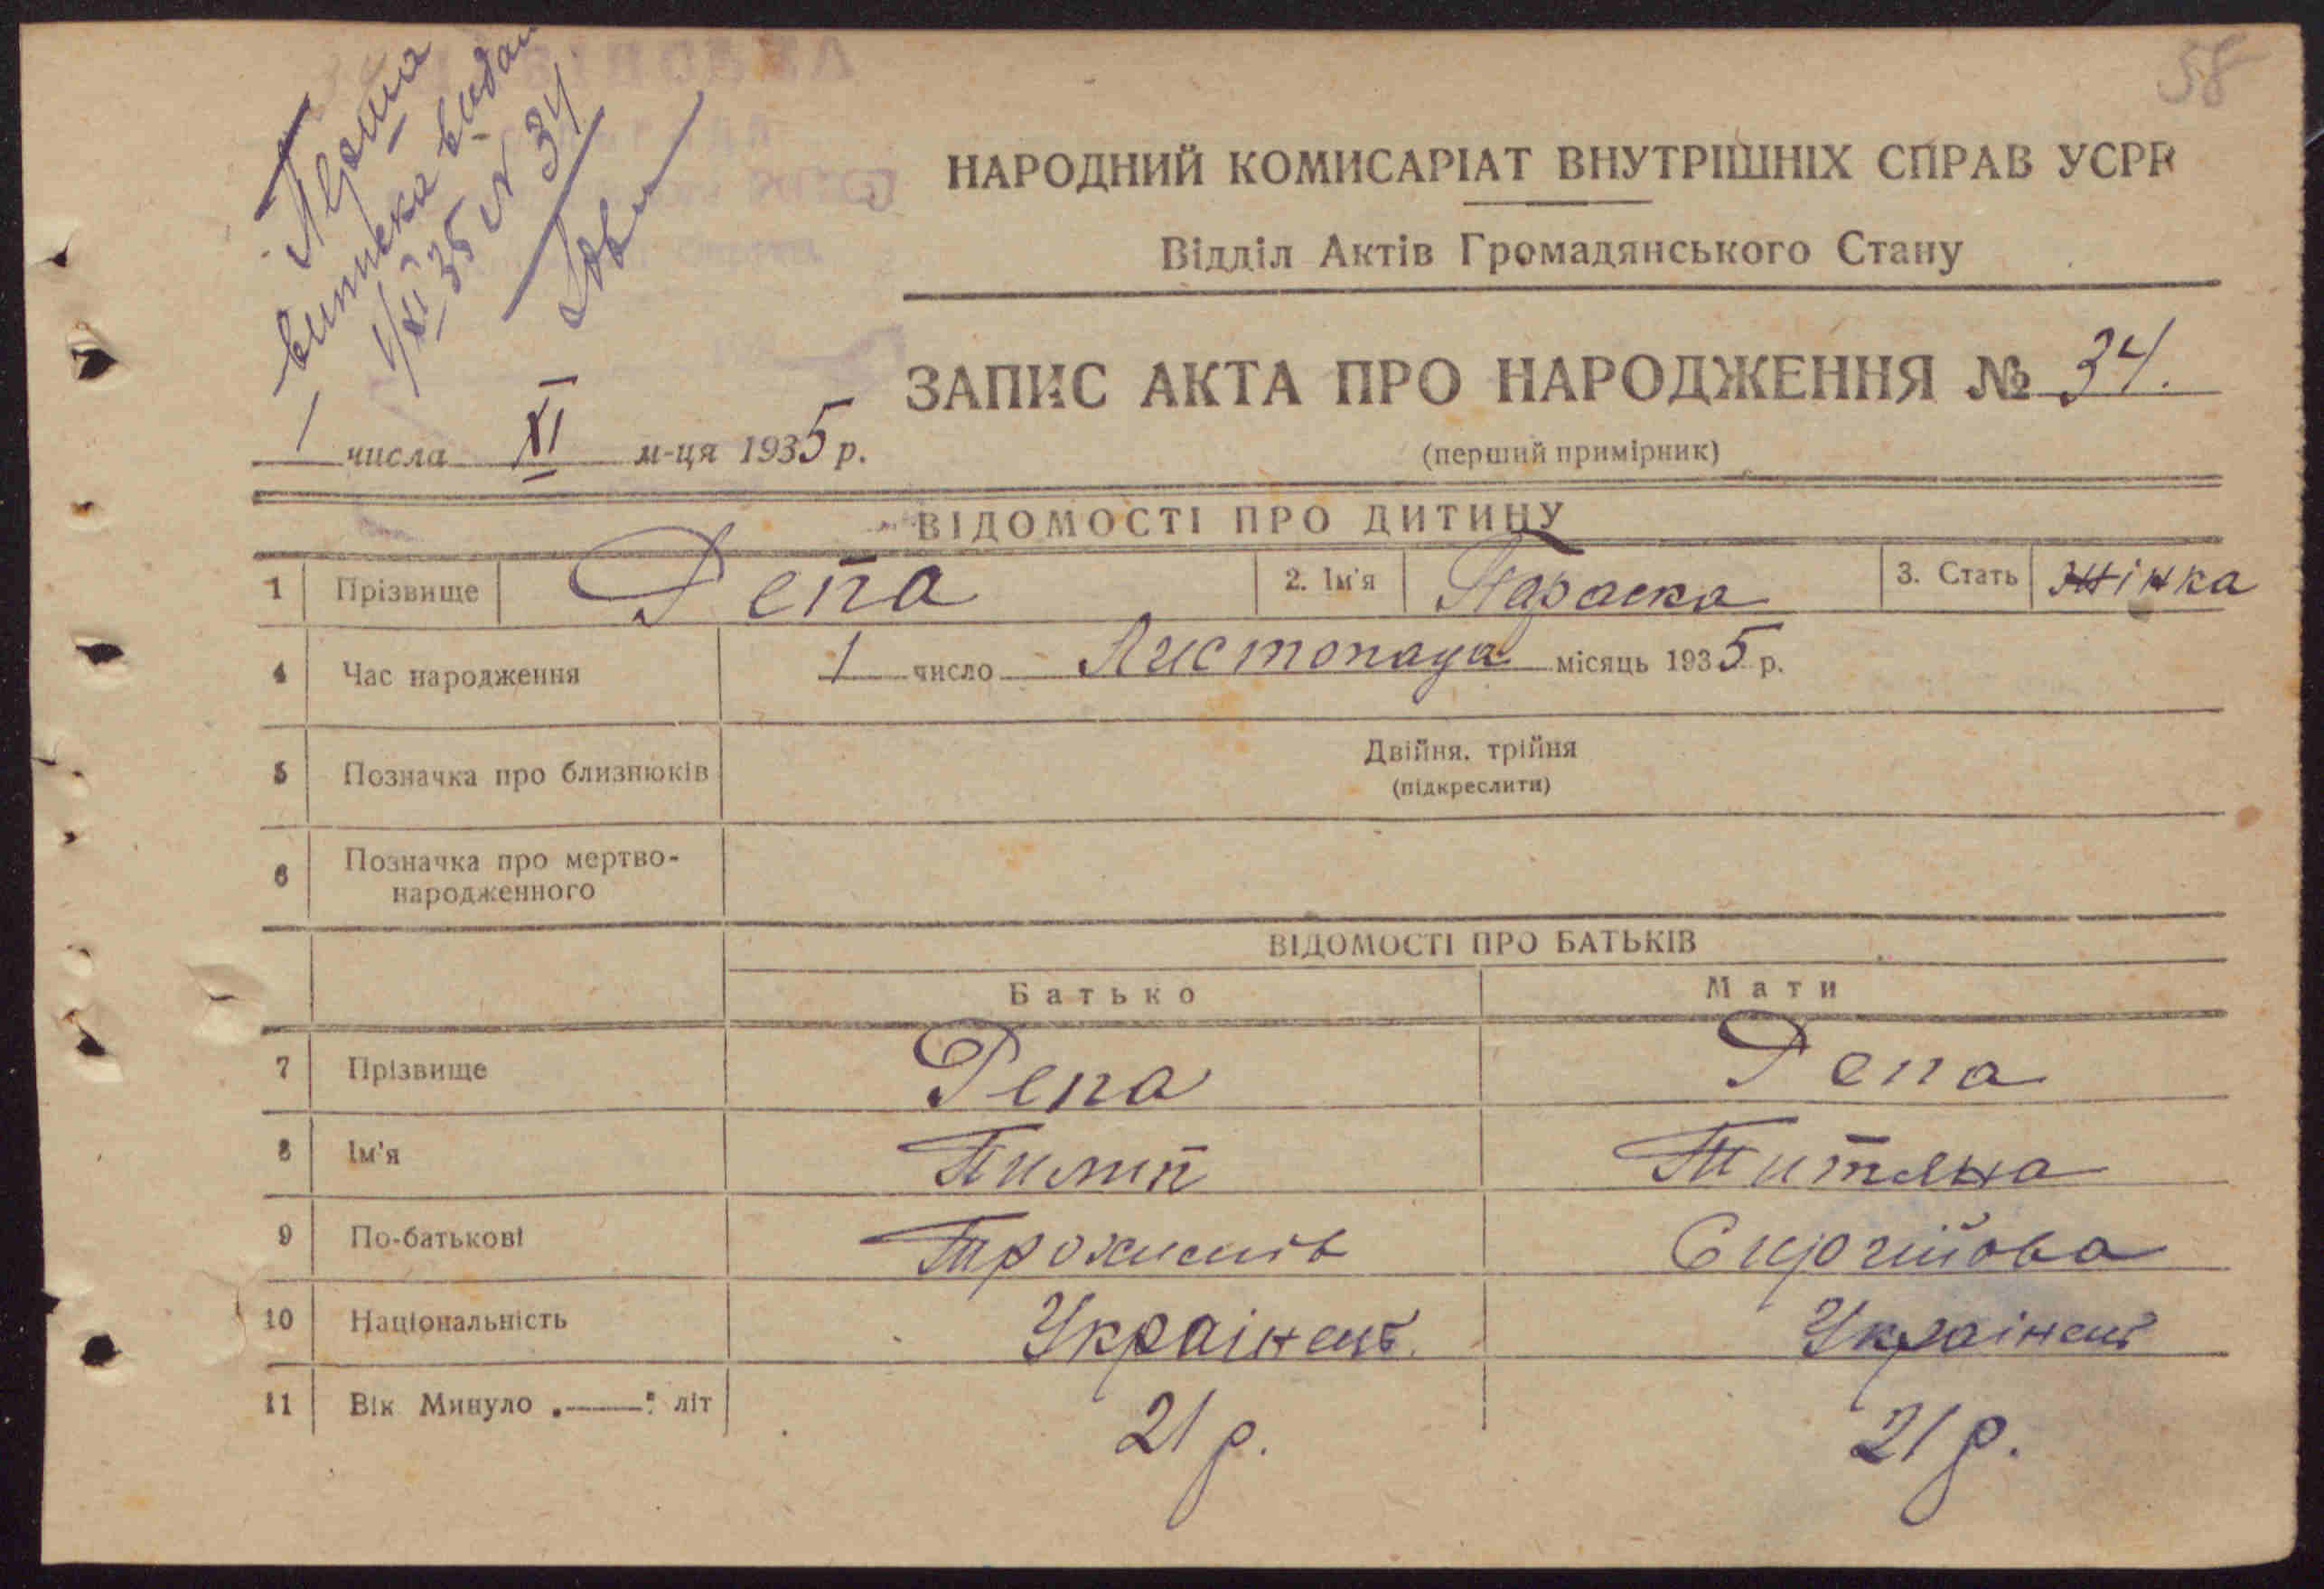 58
виписка видан
1/XI 35 № 34
НАРОДНИЙ КОМИСАРІАТ ВНУТРІШНІХ СПРАВ УСРР
Відділ Актів Громадянського Стану
ЗАПИС АКТА ПРО НАРОДЖЕННЯ № 34.
(перший примірник)
1 числа XI м-ця 1935 р.
ВІДОМОСТІ ПРО ДИТИНУ
1 Прізвище Репа 2. Ім'я Параска 3. Стать жінка
4 Час народження 1 число Листопада місяць 1935 р.
5 Позначка про близнюків Двійня, трійня
(підкреслити)
6 Позначка про мертво-
народженного
ВІДОМОСТІ ПРО БАТЬКІВ
Батько Мати
7 Прізвище Репа Репа
8 Ім'я Пилип Титяна
9 По-батькові Сиргійова
10 Національність Українець Українець
11 Вік Минуло „—“ літ 21 р. 21 р.